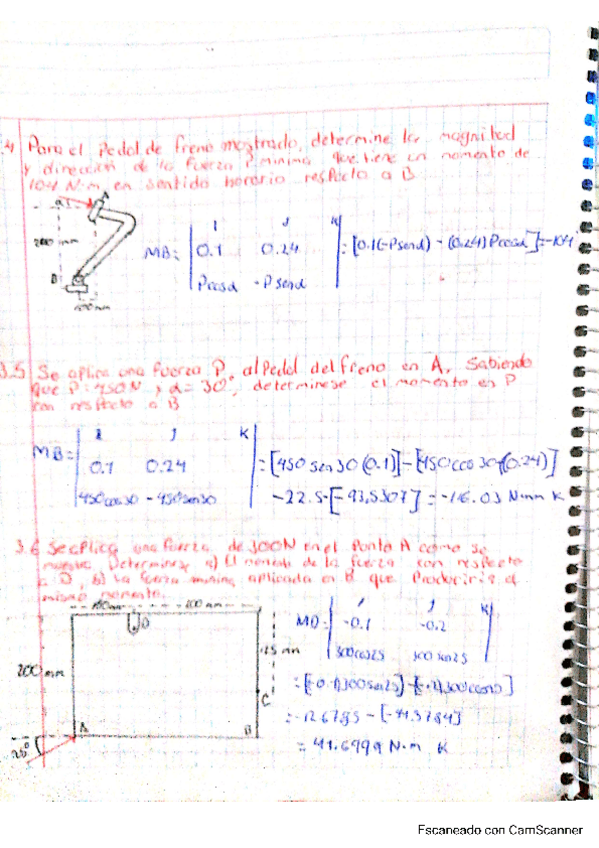 .4 Para el Pedal de freno mostrado, determine la magnitud
y dirección de la fuerza P minima que tiene un momento de
104 N·m en sentido horario respecto a B
A
200 mm
B
i j K
MB= 0.1 0.24 = [0.1(-Psend) - (0.24)Pcosd] = -104
Pcosd -Psend
3.5 Se aplica una fuerza P, al Pedal del freno en A. Sabiendo
que P= 450N y α= 30°, determinese el momento en P
con respecto a B
i j K
MB= 0.1 0.24 = [450 sen30 (0.1)] - [450cos30 (0.24)]
450cos30 -450sen30
-22.5 - [-93,5307] = -116.03 N·mm K
3.6 Se aplica una fuerza de 300N en el Punto A como se
muestra, Determinese a) El momento de la fuerza con respecto
a D, b) La fuerza minima aplicada en B que Produciria el
mismo momento.
100mm 200 mm
D
200 mm
125 mm
C
A
B
25°
i j K
MD= -0.1 -0.2
300cos25 300 sen25
= -12.6785 - [-54.3784]
= 41.6999 N·m K
Escaneado con CamScanner